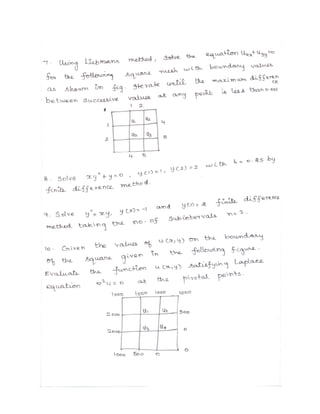 7. Using Liebmann method, solve the equation Uxx + Uyy = 0
for the following square mesh with boundary values
as shown in fig. Iterate until the maximum difference
between successive values at any point is less than 0.001
1 2
1 u1 u2 4
2 u3 u4 5
4 5
8. Solve xy" + y = 0, y(1) = 1, y(2) = 2 with h = 0.25 by
finite difference method.
9. Solve y" = xy, y(0) = -1 and y(1) = 2 finite difference
method taking the no. of subintervals n = 2.
10. Given the values of u(x,y) on the boundary
of the square given in the following figure.
Evaluate the function u(x,y) satisfying Laplace
equation ∇²u = 0 at the pivotal points.
1000 1000 1000 1000
2000 U1 U2 500
2000 U3 U4 0
1000 500 0 0